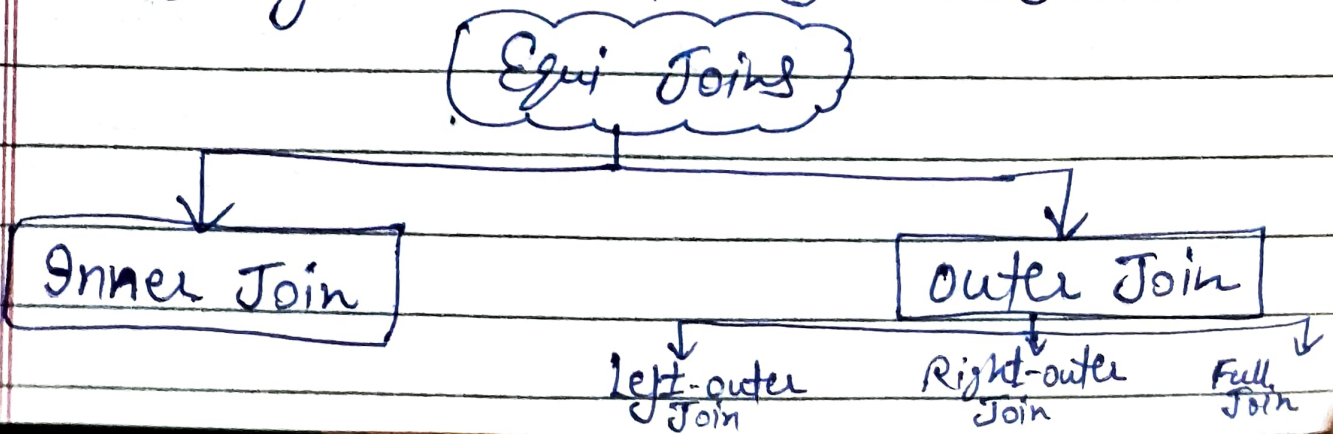 Equi Joins
Inner Join
Outer Join
Left-outer Join
Right-outer Join
Full Join